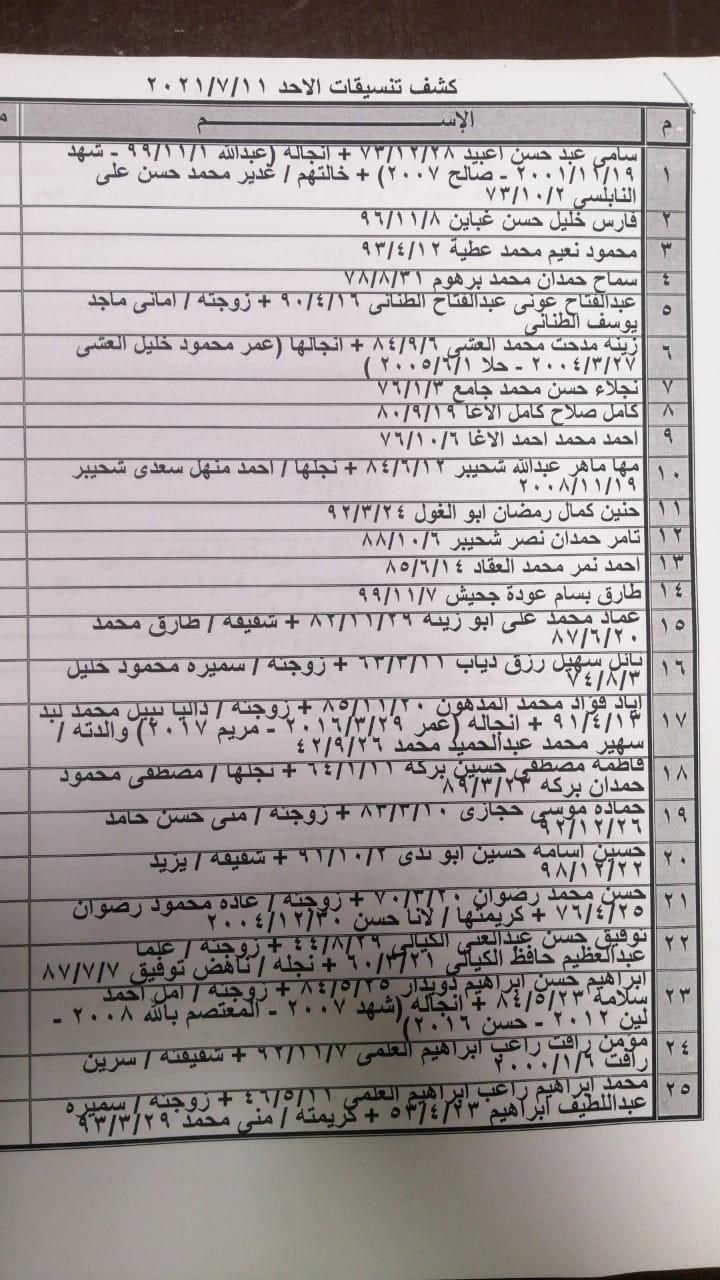 كشف تنسيقات الاحد ٢٠٢١/٧/١١
م الإســـــم م
١ سامى عبد حسن اعبيد ٧٣/١٢/٢٨ + انجاله (عبدالله ٩٩/١١/١ - شهد
٢٠٠١/١٢/١٩ - صالح ٢٠٠٧) + خالتهم / غدير محمد حسن على
النابلسى ٧٣/١٠/٢
٢ فارس خليل حسن غباين ٩٦/١١/٨
٣ محمود نعيم محمد عطية ٩٣/٤/١٢
٤ سماح حمدان محمد برهوم ٧٨/٨/٣١
٥ عبدالفتاح عونى عبدالفتاح الطنانى ٩٠/٤/١٦ + زوجته / امانى ماجد
يوسف الطنانى
٦ زينه مدحت محمد العشى ٨٤/٩/٦ + انجالها (عمر محمود خليل العشى
٢٠٠٤/٣/٢٧ - حلا ٢٠٠٥/٦/١ )
٧ نجلاء حسن محمد جامع ٧٦/١/٣
٨ كامل صلاح كامل الاغا ٨٠/٩/١٩
٩ احمد محمد احمد الاغا ٧٦/١٠/٦
١٠ مها ماهر عبدالله شحيبر ٨٤/٦/١٢ + نجلها / احمد منهل سعدى شحيبر
٢٠٠٨/١١/١٩
١١ حنين كمال رمضان ابو الغول ٩٢/٣/٢٤
١٢ تامر حمدان نصر شحيبر ٨٨/١٠/٦
١٣ احمد نمر محمد العقاد ٨٥/٦/١٤
١٤ طارق بسام عودة جحيش ٩٩/١١/٧
١٥ عماد محمد على ابو زينه ٨٢/١١/٢٩ + شقيقه / طارق محمد
٨٧/٦/٢٠
١٦ سهيل رزق دياب ٦٣/٣/١١ + زوجته / سميره محمود خليل
٧٤/٨/٣
١٧ اياد فؤاد محمد المدهون ٨٥/١١/٢٠ + زوجته / داليا نبيل محمد لبد
٩١/٤/١٣ + انجاله (عمر ٢٠١٦/٣/٢٩ - مريم ٢٠١٧) والدته /
سهير محمد عبدالحميد محمد ٤٢/٩/٢٦
١٨ فاطمه مصطفى حسين بركه ٦٤/١/١١ + نجلها / مصطفى محمود
حمدان بركه ٨٩/٣/٢٣
١٩ حماده موسى حجازى ٨٣/٣/١٠ + زوجته / منى حسن حامد
٩٢/١٢/٢٦
٢٠ حسين اسامه حسين ابو ندى ٩١/١٠/٢ + شقيقه / يزيد
٩٨/١٢/٢٢
٢١ حسن محمد رضوان ٧٠/٣/٢٠ + زوجته / غاده محمود رضوان
٧٦/٤/٢٥ + كريمتها / لانا حسن ٢٠٠٤/١٢/٣٠
٢٢ توفيق حسن عبدالغنى الكيالى ٤٤/٨/٢٩ + زوجته / عليا
عبدالعظيم حافظ الكيالى ٦٠/٣/٢١ + نجله / ناهض توفيق ٨٧/٧/٧
٢٣ ابراهيم حسن ابراهيم دويدار ٨٤/٥/٢٥ + زوجته / امل احمد
سلامه ٨٤/٥/٢٣ + انجاله (شهد ٢٠٠٧ - المعتصم بالله ٢٠٠٨ -
لين ٢٠١٢ - حسن ٢٠١٦)
٢٤ مؤمن رافت راغب ابراهيم العلمى ٩٢/١١/٧ + شقيقته / سرين
رافت ٢٠٠٠/١/٦
٢٥ محمد ابراهيم راغب ابراهيم العلمى ٤٦/٥/١١ + زوجته / سميره
عبداللطيف ابراهيم ٥٣/٤/٢٣ + كريمته / منى محمد ٩٣/٣/٢٩